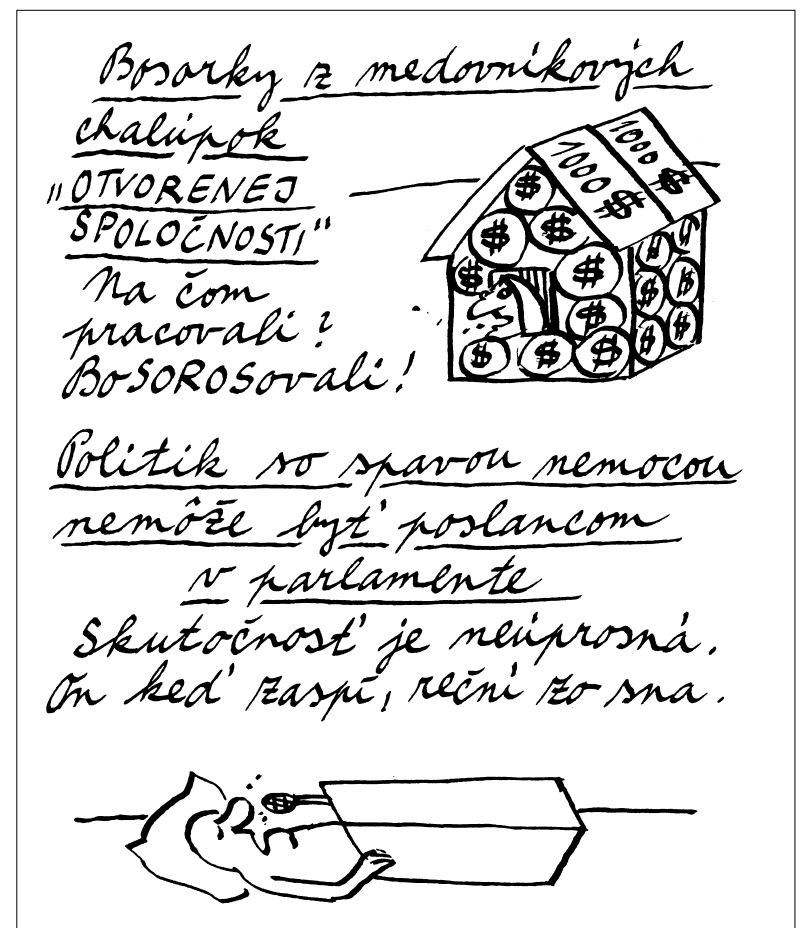 Bosorky z medovníkových
chalúpok
"OTVORENEJ
SPOLOČNOSTI"
Na čom
pracovali?
BoSOROSovali!
1000 $ 1000 $
$ $ $ $ $ $ $ $ $ $ $ $ $ $ $
Politik so spavou nemocou
nemôže byť poslancom
v parlamente
Skutočnosť je neúprosná.
On keď zaspí, reční zo sna.